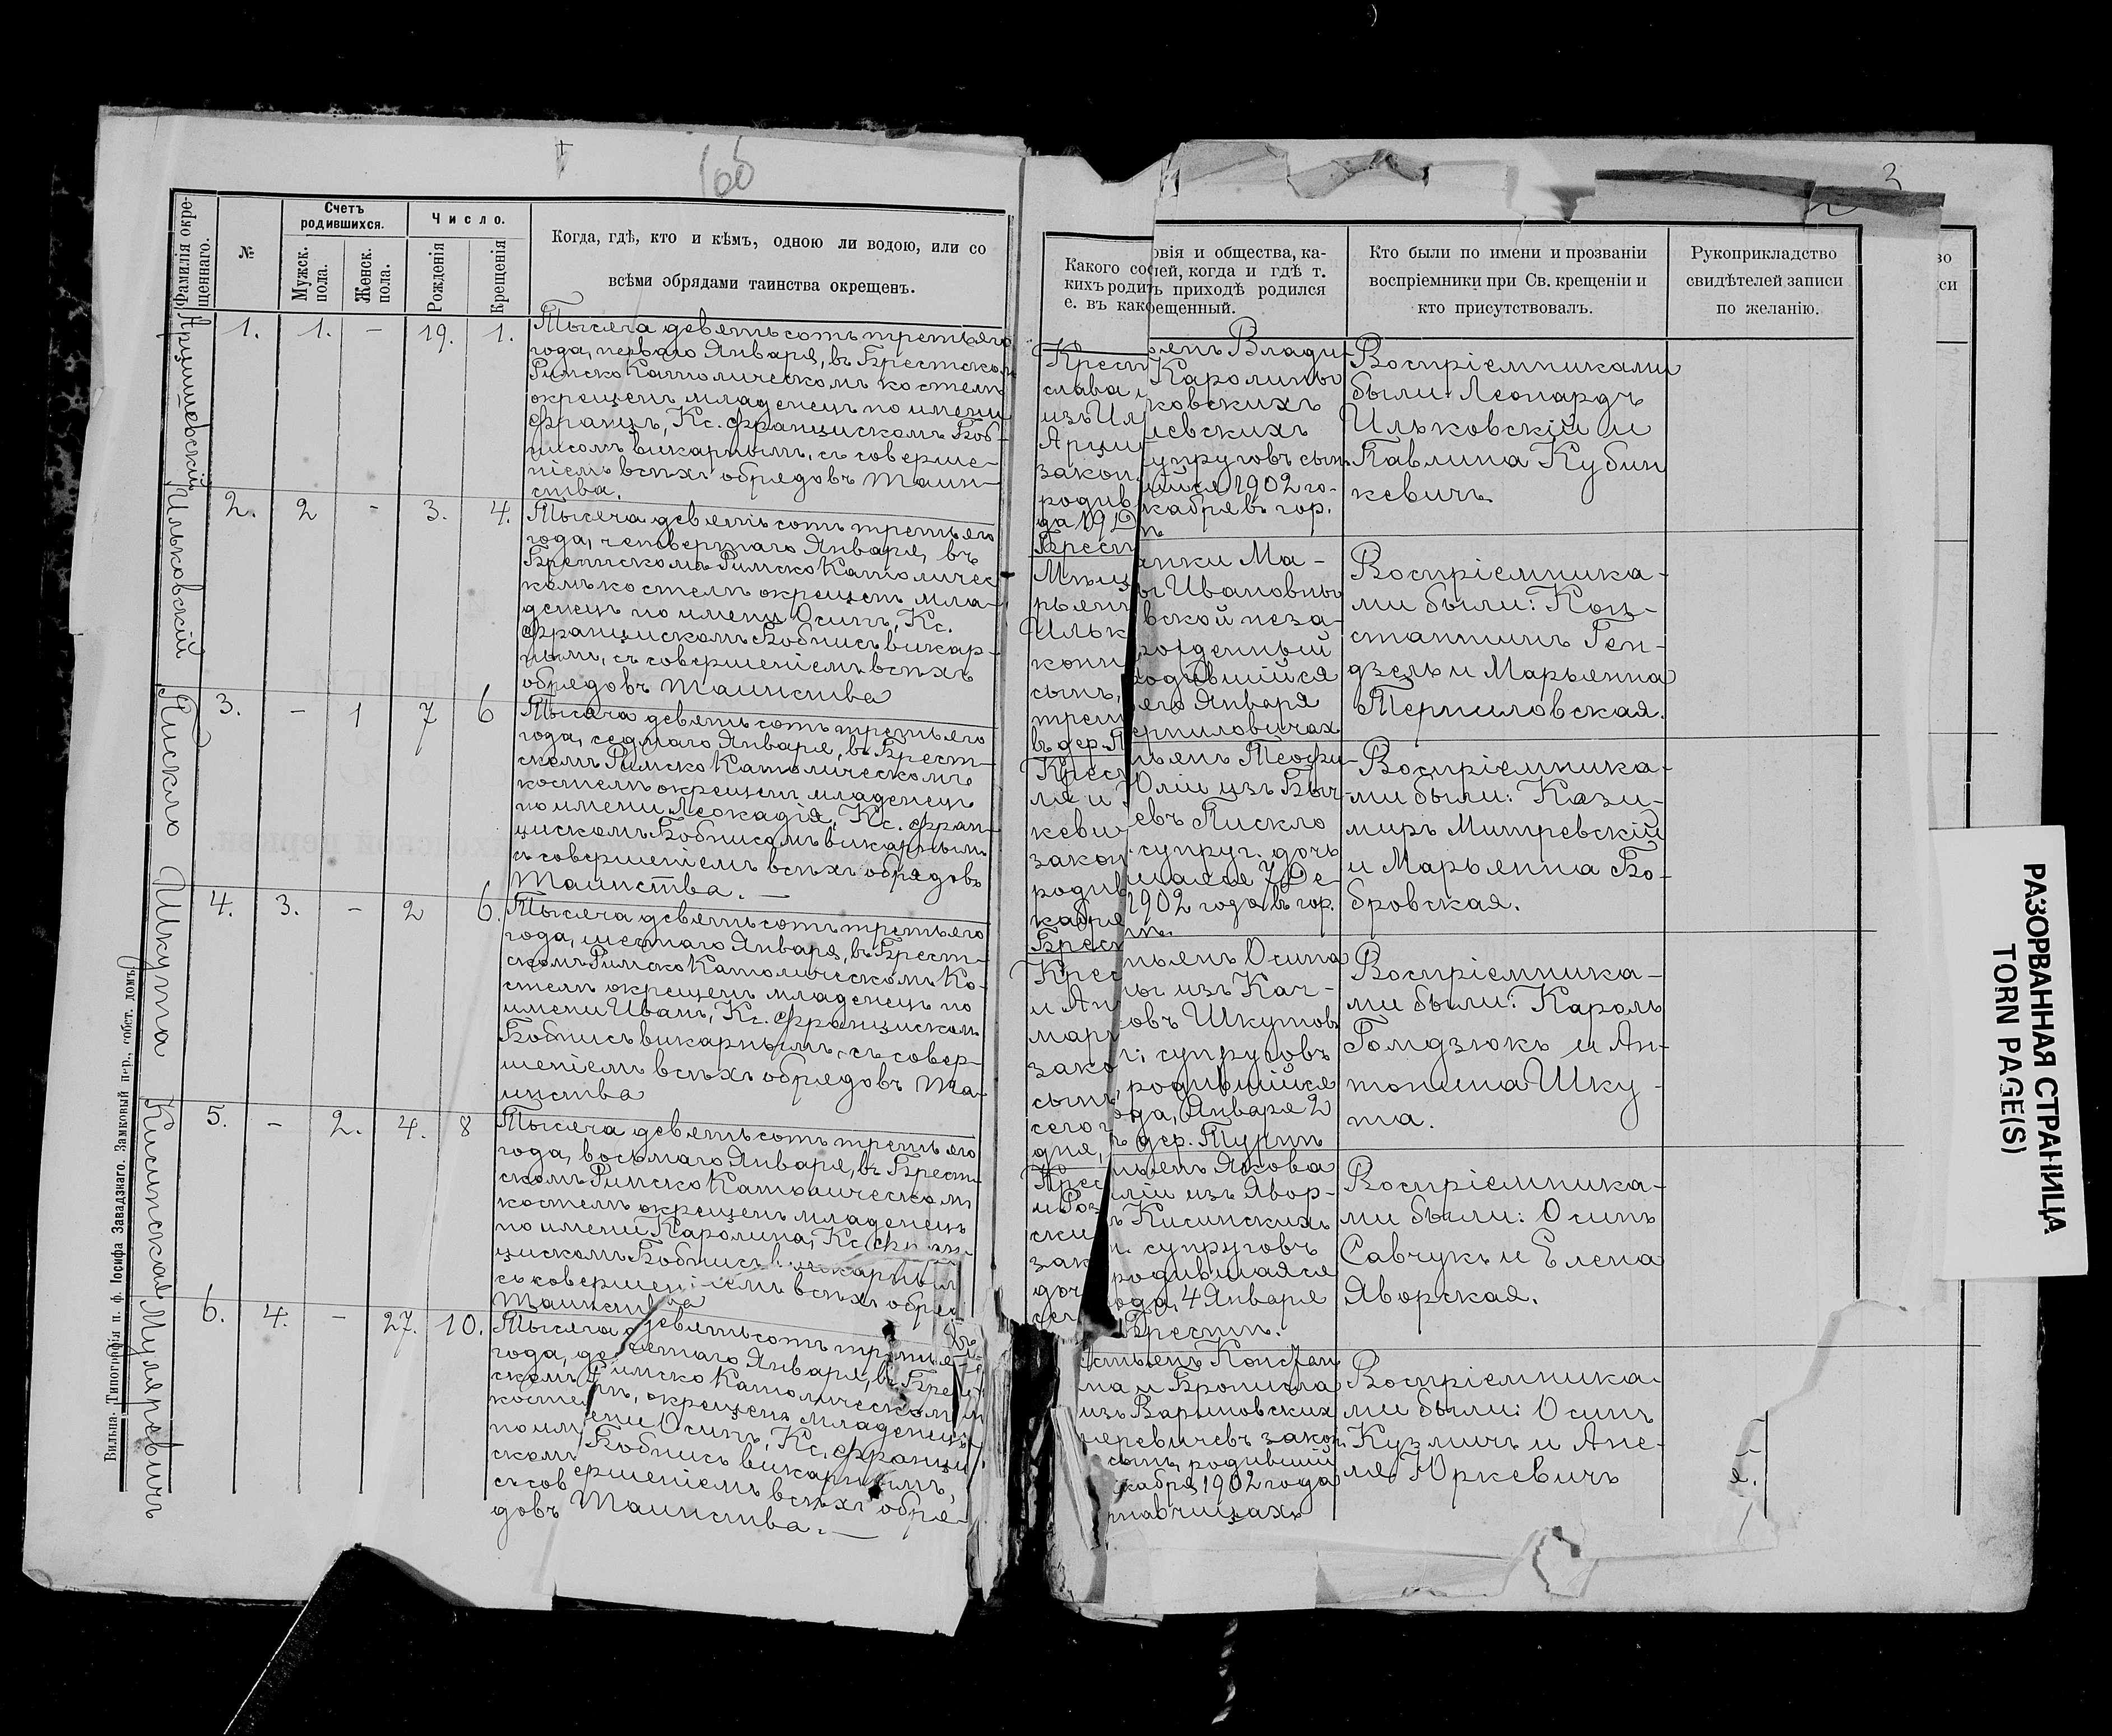 166
3
Фамилія окре-
щеннаго.
№
Счетъ
родившихся.
Мужск.
пола.
Женск.
пола.
Число.
Рожденія
Крещенія
Когда, гдѣ, кто и кѣмъ, одною ли водою, или со
всѣми обрядами таинства окрещенъ.
Арцишевскій
1. 1. - 19. 1.
Тысяча девятьсотъ третьяго
года, перваго Января, въ Брестском
Римско Католическомъ костелѣ
окрещенъ младенецъ по имени
Францъ, Кс. Францискомъ Боб-
нисомъ викарнымъ, съ соверше-
ніемъ всѣхъ обрядовъ Таин-
ства.
Ильковскій
2. 2 - 3. 4.
Тысяча девятьсотъ третьяго
года, четвертаго Января, въ
Брестскомъ Римско Католичес
комъ костелѣ окрещенъ мла-
денецъ по имени Осипъ, Кс.
Францискомъ Бобнисъ викар-
нымъ, съ совершеніемъ всѣхъ
обрядовъ Таинства
Пискло
3. - 1 7 6
Тысяча девятьсотъ третьяго
года, седмаго Января, въ Брест-
скомъ Римско Католическомъ
костелѣ окрещенъ младенецъ
по имени Леокадія, Кс. Фран-
цискомъ Бобнисомъ викарнымъ
съ совершеніемъ всѣхъ обрядовъ
Таинства. —
Шкута
4. 3. - 2 6.
Тысяча девятьсотъ третьяго
года, шестаго Января, въ Брест-
скомъ Римско Католическомъ Ко-
стелѣ окрещенъ младенецъ по
имени Иванъ, Кс. Францискомъ
Бобнисъ викарнымъ, съ совер-
шеніемъ всѣхъ обрядовъ Та-
инства
Кисинская
5. - 2. 4. 8
Тысяча девятьсотъ третьяго
года, восьмаго Января, въ Брест-
скомъ Римско Католическомъ
костелѣ окрещенъ младенецъ
по имени Каролина, Кс. Фран
цискомъ Бобнисъ викарным
съ совершеніемъ всѣхъ обряд
Таинства
Муляревичъ
6. 4. - 27. 10.
Тысяча девятьсотъ третья
года, десятаго Января, въ Брес
скомъ Римско Католическом
костелѣ, окрещенъ младенецъ
по имени Осипъ, Кс. Франци
скомъ Бобнисъ викарнымъ,
съ совершеніемъ всѣхъ обря-
довъ Таинства. —
Вильна. Типографія п. ф. Іосифа Завадзкаго. Замковый пер., собст. домъ
Какого сос овія и общества, ка-
кихъ родит лей, когда и гдѣ т.
е. въ как ъ приходѣ родился
ещенный.
Кто были по имени и прозванію
воспріемники при Св. крещеніи и
кто присутствовалъ.
Рукоприкладство
свидѣтелей записи
по желанію.
Крест янъ Влади
слава и Каролины
изъ Ил ковскихъ
Арциш евскихъ
закон. супруговъ сын
родив шійся 1902 го-
да 19 Д кабря въ гор.
Брест
Воспріемниками
были Леонардъ
Ильковскій и
Павлина Кубин
кевичъ.
Мѣщ анки Ма-
рьян ы Ивановны
Ильк овской неза-
конн орожденный
сынъ, родившійся
трет ьяго Января
въ дер. Т ерпиловичах
Воспріемника-
ми были: Кон-
стантинъ Ген-
дзель и Марьянна
Терпиловская.
Крест ьянъ Теофи-
ля и Юліи изъ Быч-
кеви чевъ Пискло
закон. супруг. дочь
родив шаяся 7 Де-
кабря 1902 года въ гор.
Брест
Воспріемника-
ми были: Кази-
миръ Митревскій
и Марьянна Бо-
бровская.
Крес тьянъ Осипа
и Ан ны изъ Кач-
мар ковъ Шкутовъ
зако н. супруговъ
сынъ, родившійся
сего года, Января 2
дня, въ дер. Тури
Воспріемника-
ми были: Кароль
Гомдзюкъ и Ан-
тонина Шку-
та.
Крес тьянъ Якова
и Роз аліи изъ Явор-
ски хъ Кисинскихъ
зак н. супруговъ
доч ь родившаяся
сег о года, 4 Января
Брестѣ.
Воспріемника-
ми были: Осипъ
Савчукъ и Елена
Яворская.
стьянъ Констан
на и Бронисла
изъ Вариновских
яревичевъ закон
сынъ, родившій
кабря 1902 года
навчицахъ
Воспріемника-
ми были: Осипъ
Кузмичъ и Ане-
ля Юркевичъ
РАЗОРВАННАЯ СТРАНИЦА
TORN PAGE(S)